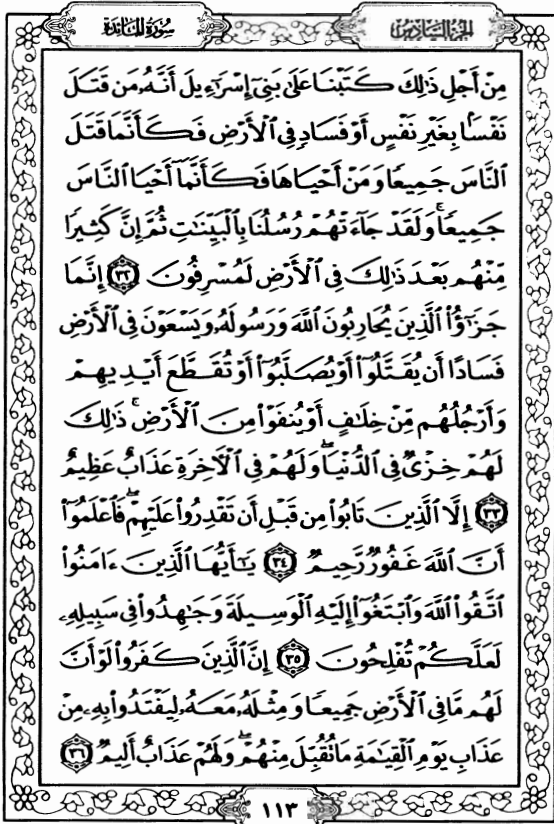 سُورَةُ المَائدة
الجزء السادس
مِنْ أَجْلِ ذَٰلِكَ كَتَبْنَا عَلَىٰ بَنِىٓ إِسْرَٰٓءِيلَ أَنَّهُۥ مَن قَتَلَ
نَفْسًۢا بِغَيْرِ نَفْسٍ أَوْ فَسَادٍۢ فِى ٱلْأَرْضِ فَكَأَنَّمَا قَتَلَ
ٱلنَّاسَ جَمِيعًا وَمَنْ أَحْيَاهَا فَكَأَنَّمَآ أَحْيَا ٱلنَّاسَ
جَمِيعًا ۚ وَلَقَدْ جَآءَتْهُمْ رُسُلُنَا بِٱلْبَيِّنَٰتِ ثُمَّ إِنَّ كَثِيرًا
مِّنْهُم بَعْدَ ذَٰلِكَ فِى ٱلْأَرْضِ لَمُسْرِفُونَ ٣٢ إِنَّمَا
جَزَٰٓؤُا۟ ٱلَّذِينَ يُحَارِبُونَ ٱللَّهَ وَرَسُولَهُۥ وَيَسْعَوْنَ فِى ٱلْأَرْضِ
فَسَادًا أَن يُقَتَّلُوٓا۟ أَوْ يُصَلَّبُوٓا۟ أَوْ تُقَطَّعَ أَيْدِيهِمْ
وَأَرْجُلُهُم مِّنْ خِلَٰفٍ أَوْ يُنفَوْا۟ مِنَ ٱلْأَرْضِ ۚ ذَٰلِكَ
لَهُمْ خِزْىٌ فِى ٱلدُّنْيَا ۖ وَلَهُمْ فِى ٱلْءَاخِرَةِ عَذَابٌ عَظِيمٌ
٣٣ إِلَّا ٱلَّذِينَ تَابُوا۟ مِن قَبْلِ أَن تَقْدِرُوا۟ عَلَيْهِمْ ۖ فَٱعْلَمُوٓا۟
أَنَّ ٱللَّهَ غَفُورٌ رَّحِيمٌ ٣٤ يَٰٓأَيُّهَا ٱلَّذِينَ ءَامَنُوا۟
ٱتَّقُوا۟ ٱللَّهَ وَٱبْتَغُوٓا۟ إِلَيْهِ ٱلْوَسِيلَةَ وَجَٰهِدُوا۟ فِى سَبِيلِهِۦ
لَعَلَّكُمْ تُفْلِحُونَ ٣٥ إِنَّ ٱلَّذِينَ كَفَرُوا۟ لَوْ أَنَّ
لَهُم مَّا فِى ٱلْأَرْضِ جَمِيعًا وَمِثْلَهُۥ مَعَهُۥ لِيَفْتَدُوا۟ بِهِۦ مِنْ
عَذَابِ يَوْمِ ٱلْقِيَٰمَةِ مَا تُقُبِّلَ مِنْهُمْ ۖ وَلَهُمْ عَذَابٌ أَلِيمٌ ٣٦
١١٣